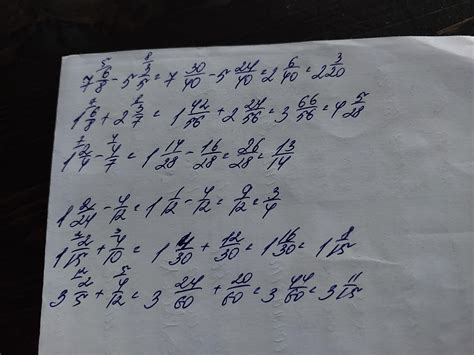 7 6/8 - 5 3/5 = 7 30/40 - 5 24/40 = 2 6/40 = 2 3/20
1 6/8 + 2 3/7 = 1 42/56 + 2 24/56 = 3 66/56 = 4 5/28
1 2/4 - 4/7 = 1 14/28 - 16/28 = 26/28 = 13/14
1 2/24 - 4/12 = 1 1/12 - 4/12 = 9/12 = 3/4
1 2/15 + 4/10 = 1 4/30 + 12/30 = 1 16/30 = 1 8/15
3 2/5 + 4/12 = 3 24/60 + 20/60 = 3 44/60 = 3 11/15